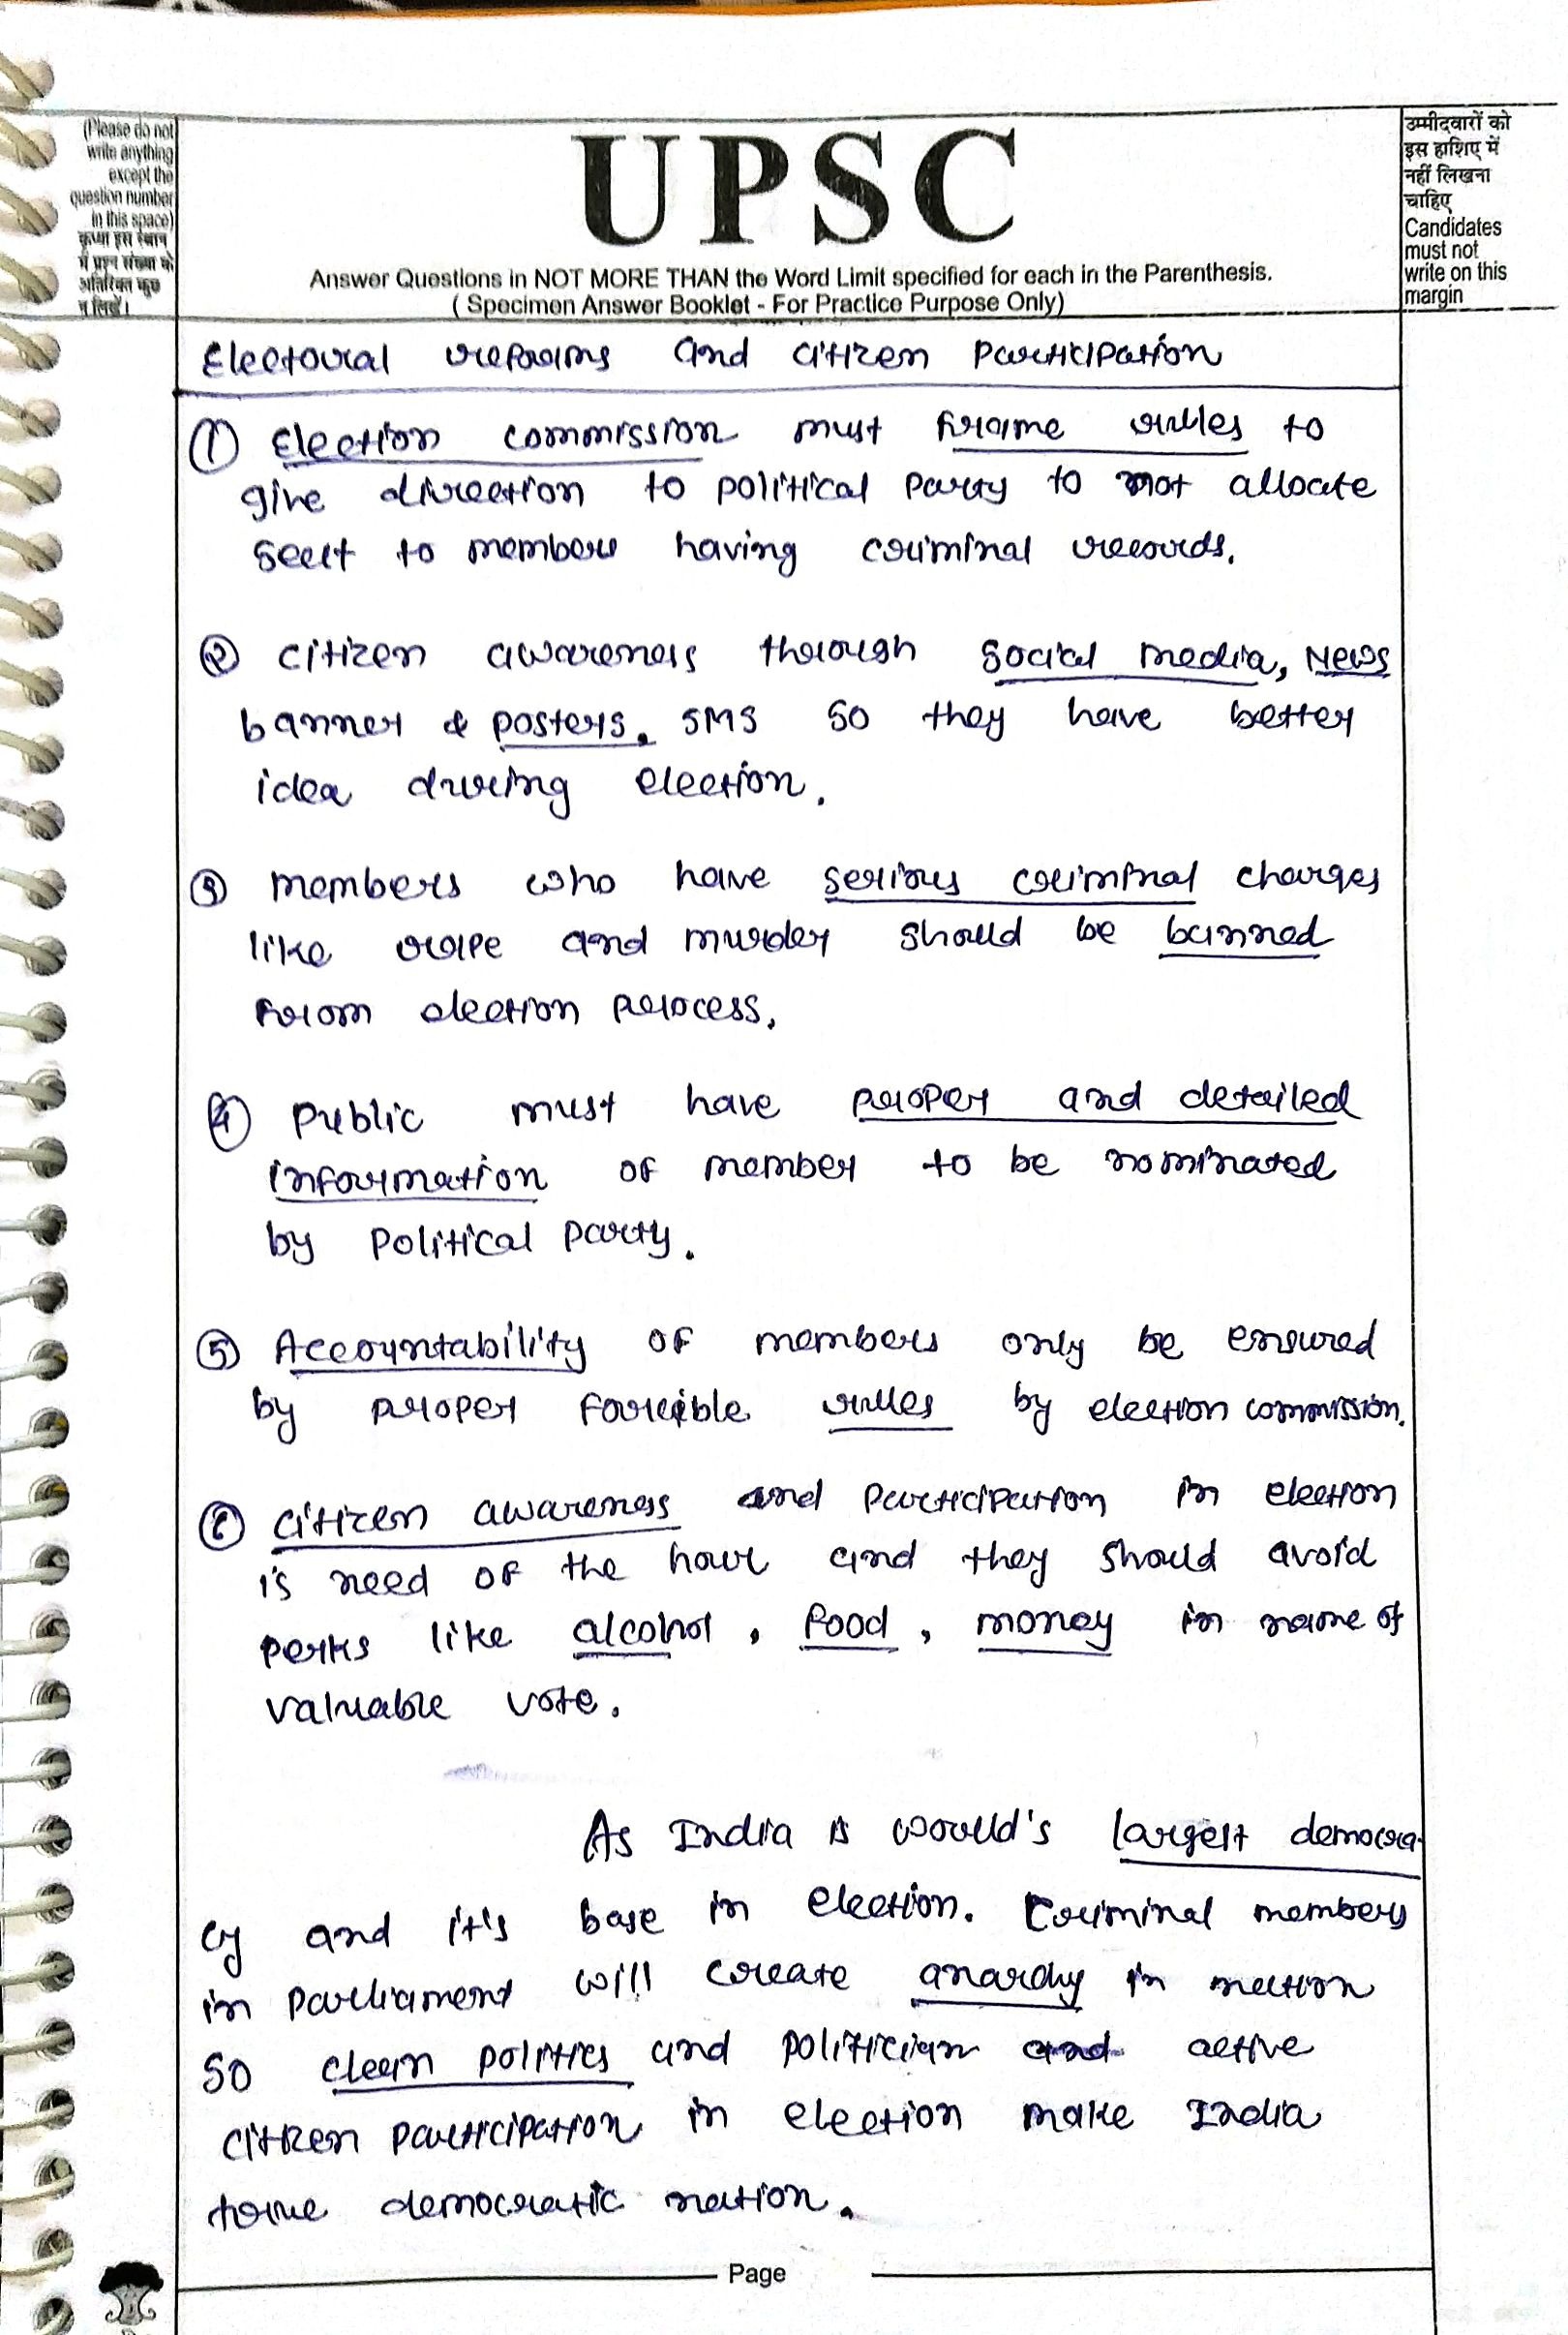 (Please do not
write anything
except the
question number
in this space)
कृपया इस स्थान
में प्रश्न संख्या के
अतिरिक्त कुछ
न लिखें।
UPSC
Answer Questions in NOT MORE THAN the Word Limit specified for each in the Parenthesis.
( Specimen Answer Booklet - For Practice Purpose Only)
उम्मीदवारों को
इस हाशिए में
नहीं लिखना
चाहिए
Candidates
must not
write on this
margin
Electoral reforms and citizen participation
① Election commission must frame rules to
give direction to political party to not allocate
seat to members having criminal records.
② citizen awareness through social media, News
banner & posters, SMS so they have better
idea during election.
③ members who have serious criminal charges
like rape and murder should be banned
from election process.
④ Public must have proper and detailed
information of member to be nominated
by political party.
⑤ Accountability of members only be ensured
by proper forcible rules by election commission.
⑥ citizen awareness and participation in election
is need of the hour and they should avoid
perks like alcohol, food, money in name of
valuable vote.
As India is world's largest democra-
cy and it's base in election. Criminal members
in parliament will create anarchy in nation
so clean politics and politician and active
citizen participation in election make India
true democratic nation.
Page